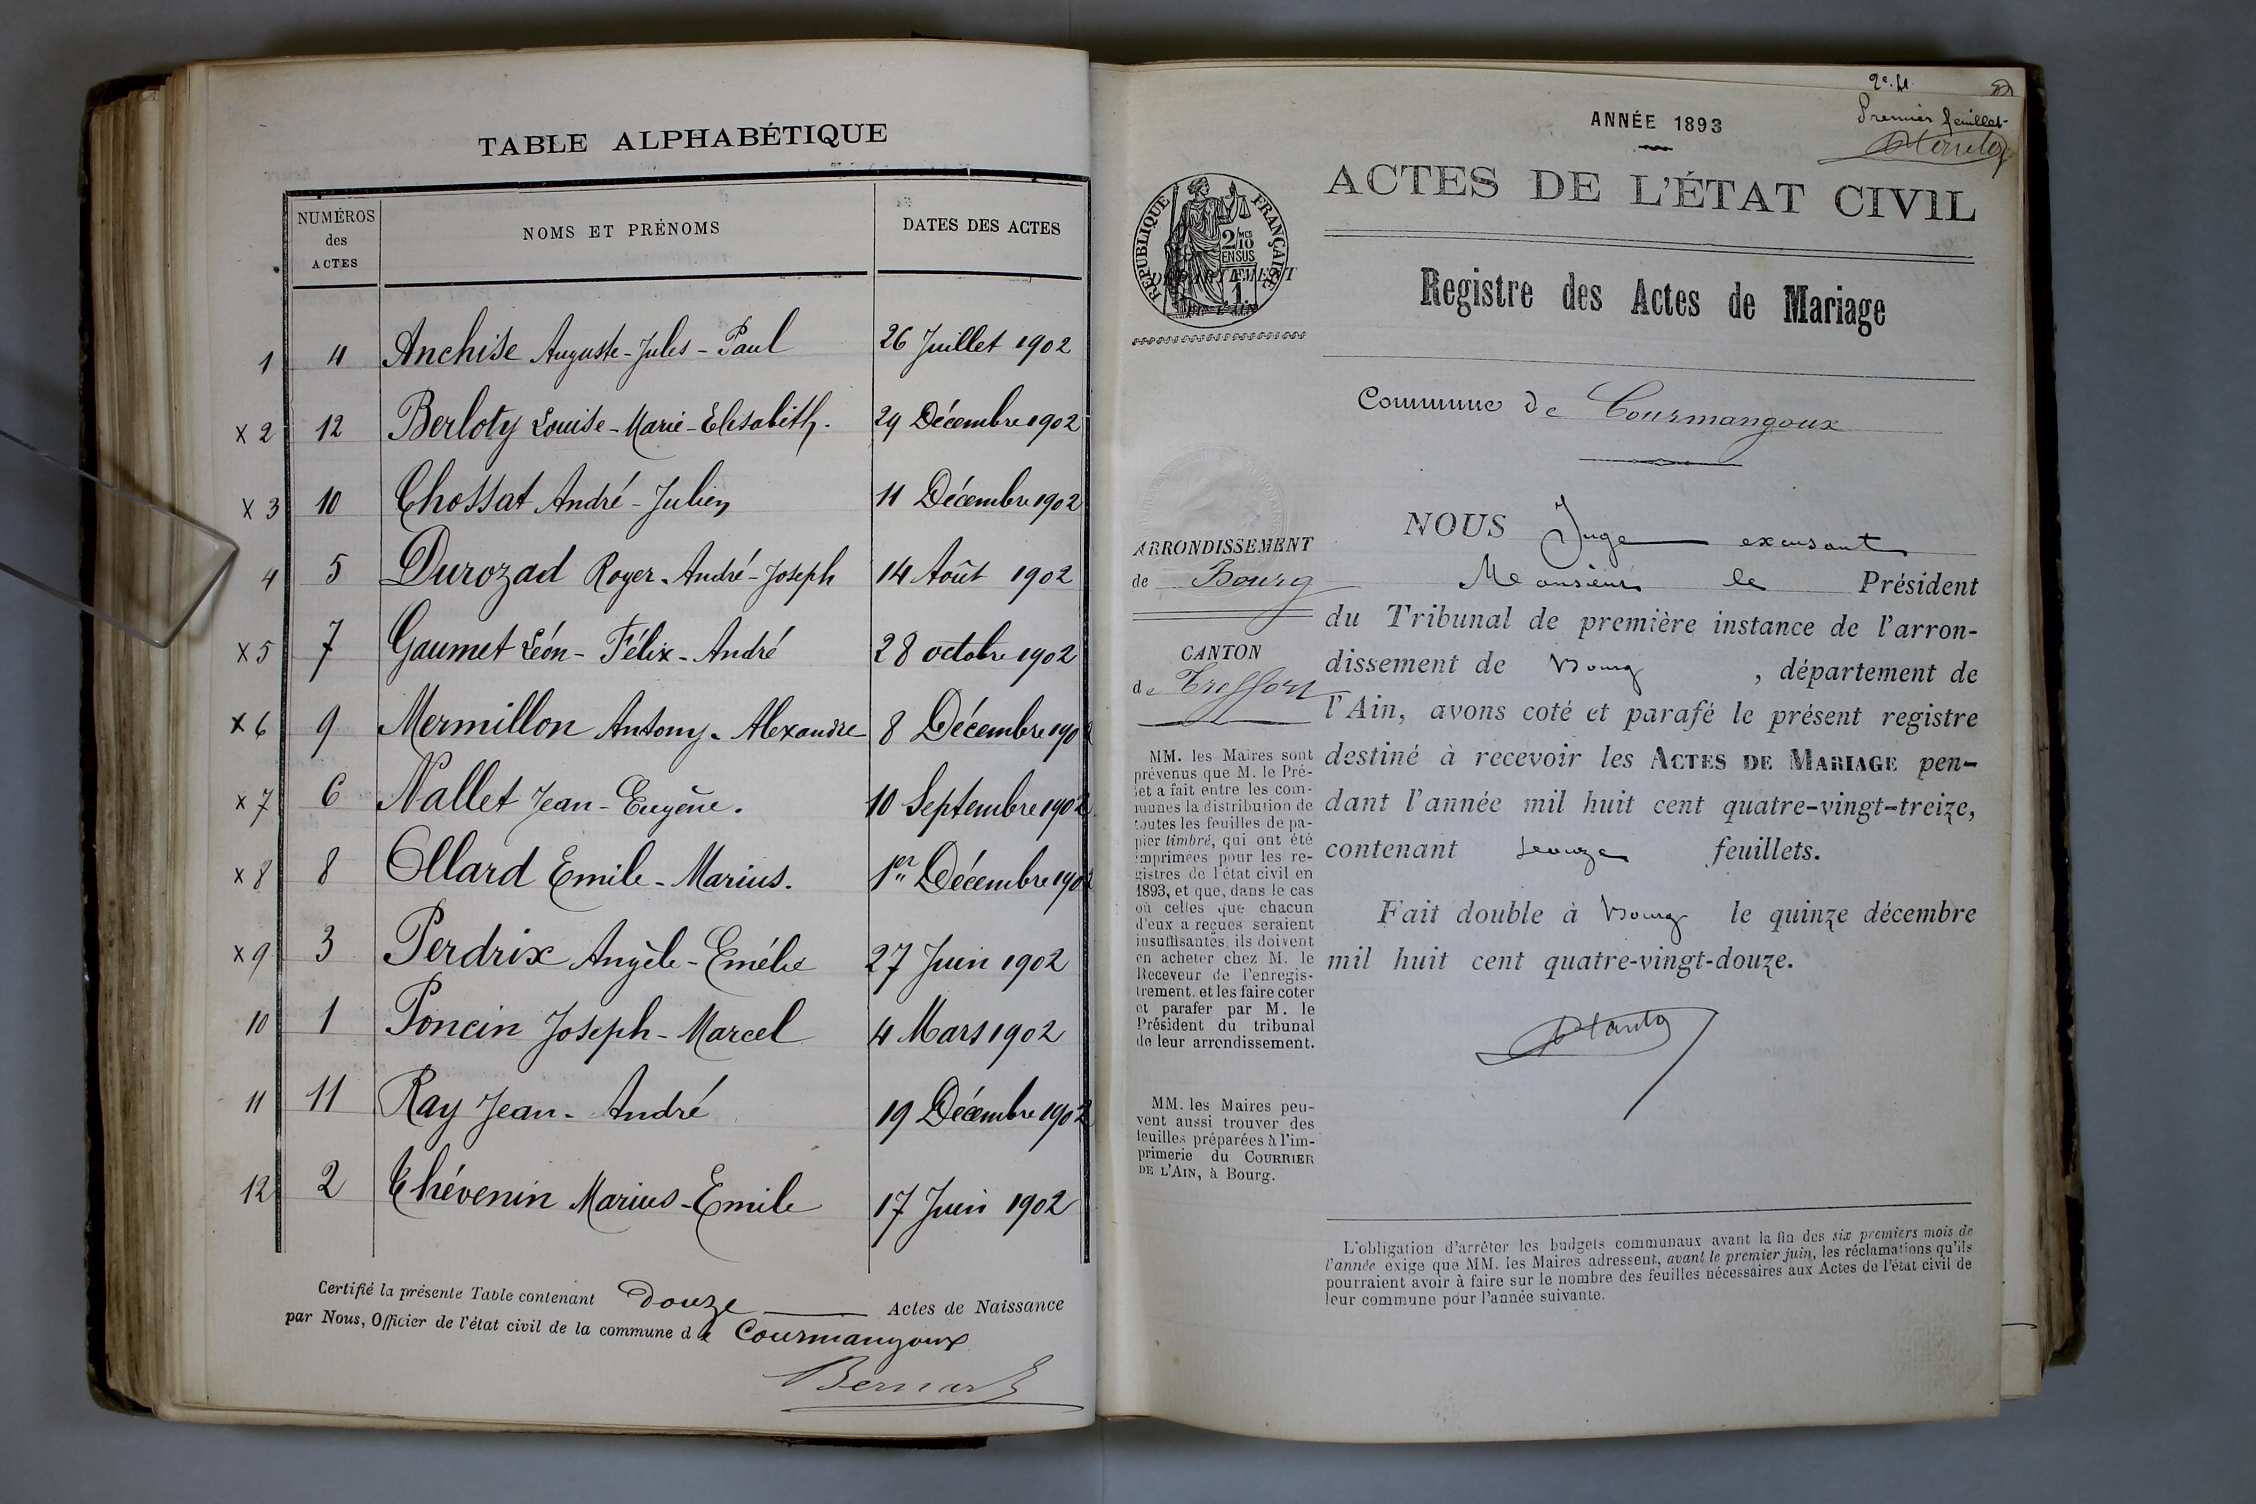 TABLE ALPHABÉTIQUE
NUMÉROS des ACTES
NOMS ET PRÉNOMS
DATES DES ACTES
1 4 Anchise Auguste-Jules-Paul 26 Juillet 1902
x 2 12 Berloty Louise-Marie-Elisabeth. 29 Décembre 1902
x 3 10 Chossat André-Julien 11 Décembre 1902
4 5 Durozad Royer-André-Joseph 14 Août 1902
x 5 7 Gaumet Léon-Félix-André 28 octobre 1902
x 6 9 Mermillon Antony-Alexandre 8 Décembre 1902
x 7 6 Nallet Jean-Eugène. 10 Septembre 1902
x 8 8 Ollard Emile-Marius. 1er Décembre 1902
x 9 3 Perdrix Angèle-Emélie 27 Juin 1902
10 1 Poncin Joseph-Marcel 4 Mars 1902
11 11 Ray Jean-André 19 Décembre 1902
12 2 Thévenin Marius-Emile 17 Juin 1902
Certifié la présente Table contenant Douze Actes de Naissance
par Nous, Officier de l'état civil de la commune de Courmangoux
Bernard
Premier feuillet
ANNÉE 1893
ACTES DE L'ÉTAT CIVIL
RÉPUBLIQUE FRANÇAISE
2/10 MES
EN SUS
DÉPARTEMENT
1.
DE L'AIN
Registre des Actes de Mariage
Commune de Courmangoux
ARRONDISSEMENT
de Bourg
CANTON
de Treffort
MM. les Maires sont
prévenus que M. le Pré-
fet a fait entre les com-
munes la distribution de
toutes les feuilles de pa-
pier timbré, qui ont été
imprimées pour les re-
gistres de l'état civil en
1893, et que, dans le cas
où celles que chacun
d'eux a reçues seraient
insuffisantes, ils doivent
en acheter chez M. le
Receveur de l'enregis-
trement, et les faire coter
et parafer par M. le
Président du tribunal
de leur arrondissement.
MM. les Maires peu-
vent aussi trouver des
feuilles préparées à l'im-
primerie du COURRIER
DE L'AIN, à Bourg.
NOUS Juge excusant
Monsieur le Président
du Tribunal de première instance de l'arron-
dissement de Bourg, département de
l'Ain, avons coté et parafé le présent registre
destiné à recevoir les ACTES DE MARIAGE pen-
dant l'année mil huit cent quatre-vingt-treize,
contenant feuillets.
Fait double à Bourg le quinze décembre
mil huit cent quatre-vingt-douze.
L'obligation d'arrêter les budgets communaux avant la fin des six premiers mois de
l'année exige que MM. les Maires adressent, avant le premier juin, les réclamations qu'ils
pourraient avoir à faire sur le nombre des feuilles nécessaires aux Actes de l'état civil de
leur commune pour l'année suivante.